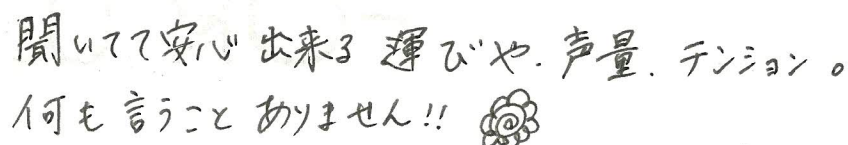 聞いてて安心出来る運びや、声量、テンション。
何も言うことありません!!